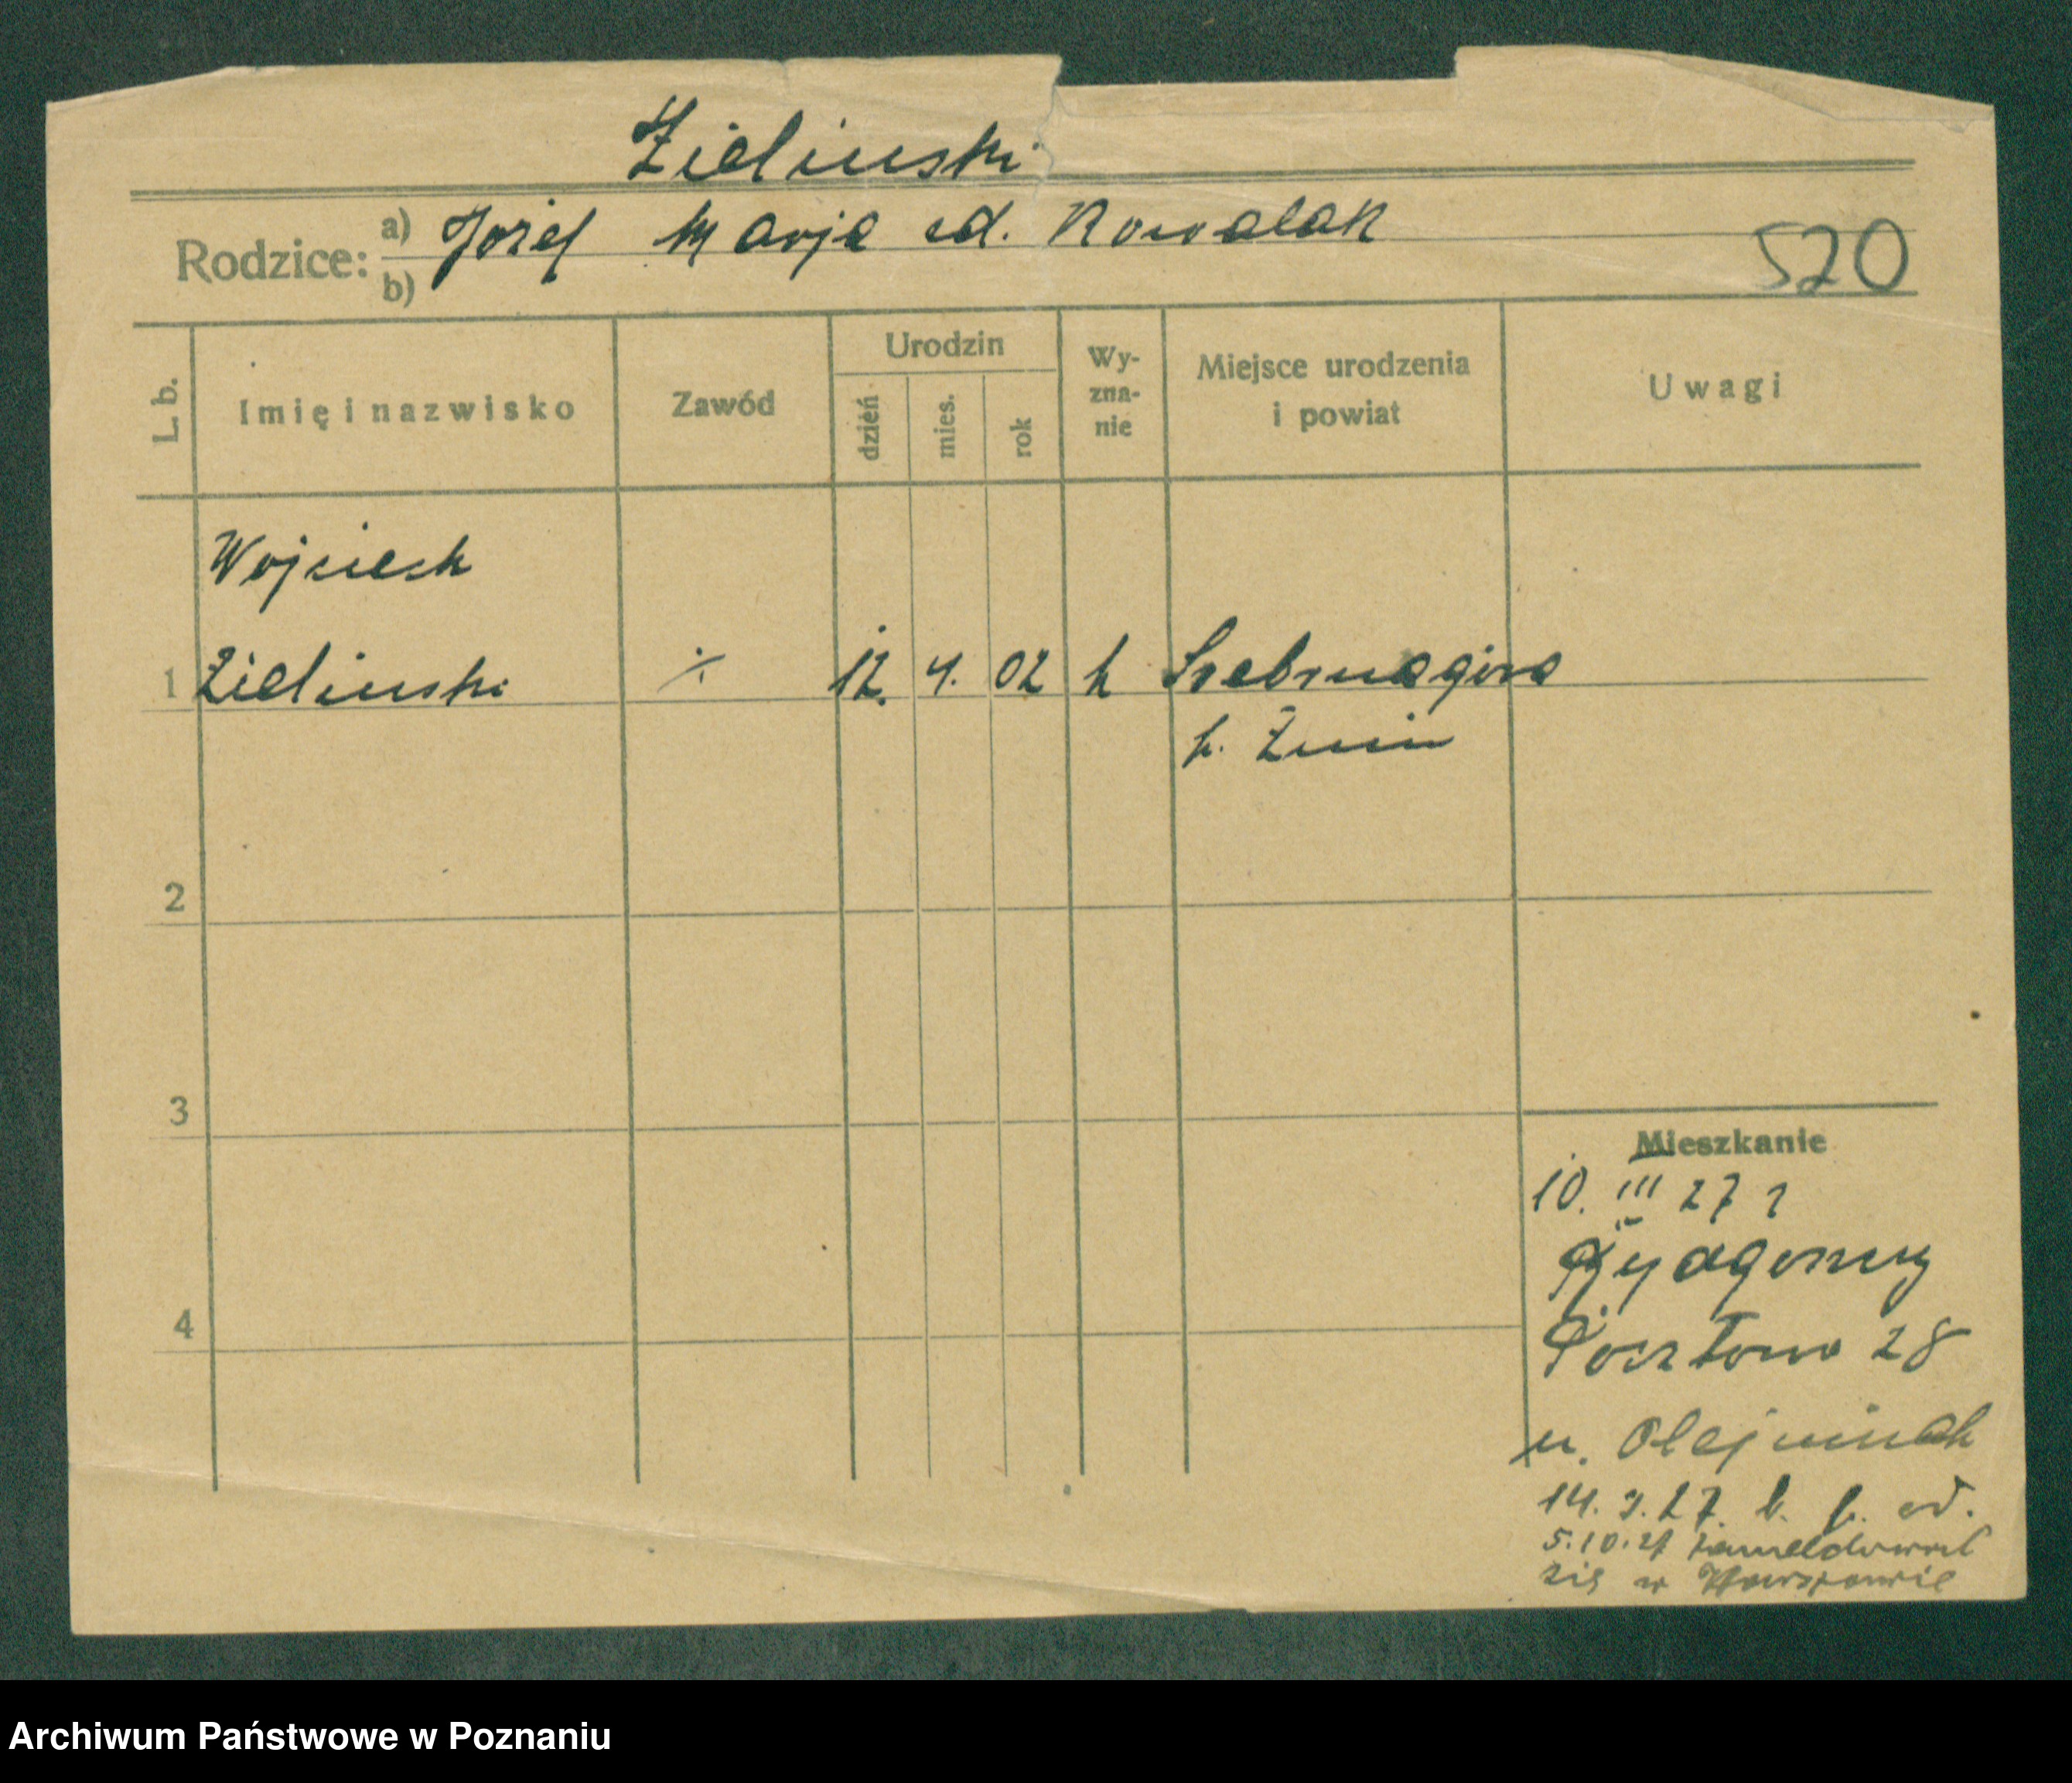 Zielinski
Rodzice: a) Józef Marja od. Kowalak
b)
520
L. b.
Imię i nazwisko
Zawód
Urodzin
dzień
mies.
rok
Wy-
zna-
nie
Miejsce urodzenia
i powiat
Uwagi
Wojciech
1 Zielinski ·/. 12. 4. 02 k Srebrnagóra
p. Żnin
2
3
4
Mieszkanie
10. III 27 r
Bydgoszcz
Pocztowa 28
u. Olejniczak
14. 3. 27.
5.10.27 zameldował
się w
Archiwum Państwowe w Poznaniu